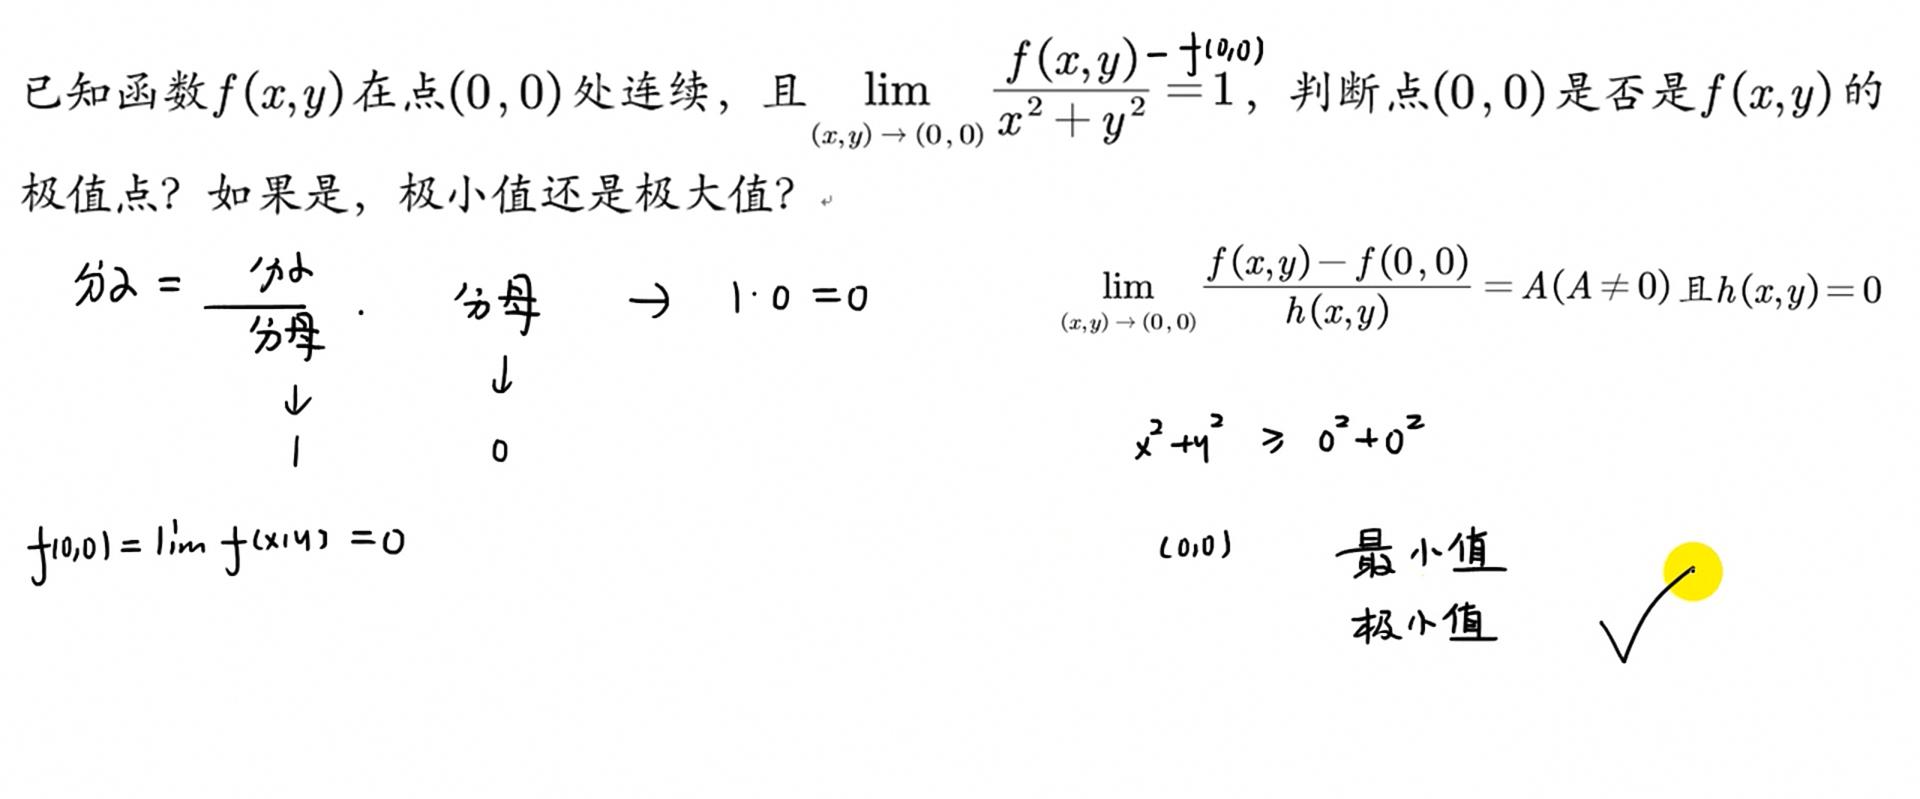 已知函数f(x,y)在点(0,0)处连续，且 lim (x,y)→(0,0) f(x,y)-f(0,0) / x²+y² =1，判断点(0,0)是否是f(x,y)的
极值点？如果是，极小值还是极大值？
分子 = 分子/分母 · 分母 → 1·0 =0
↓ ↓
1 0
f(0,0) = lim f(x,y) =0
lim (x,y)→(0,0) f(x,y)-f(0,0) / h(x,y) =A(A≠0)且h(x,y)=0
x²+y² ≥ 0²+0²
(0,0) 最小值
极小值